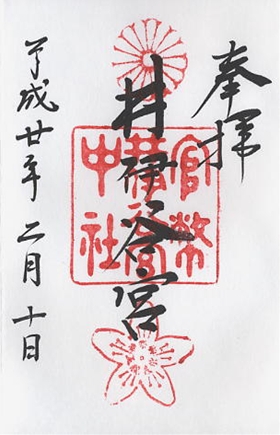 奉拝
井伊谷宮
官幣
中社
平成廿年二月十日